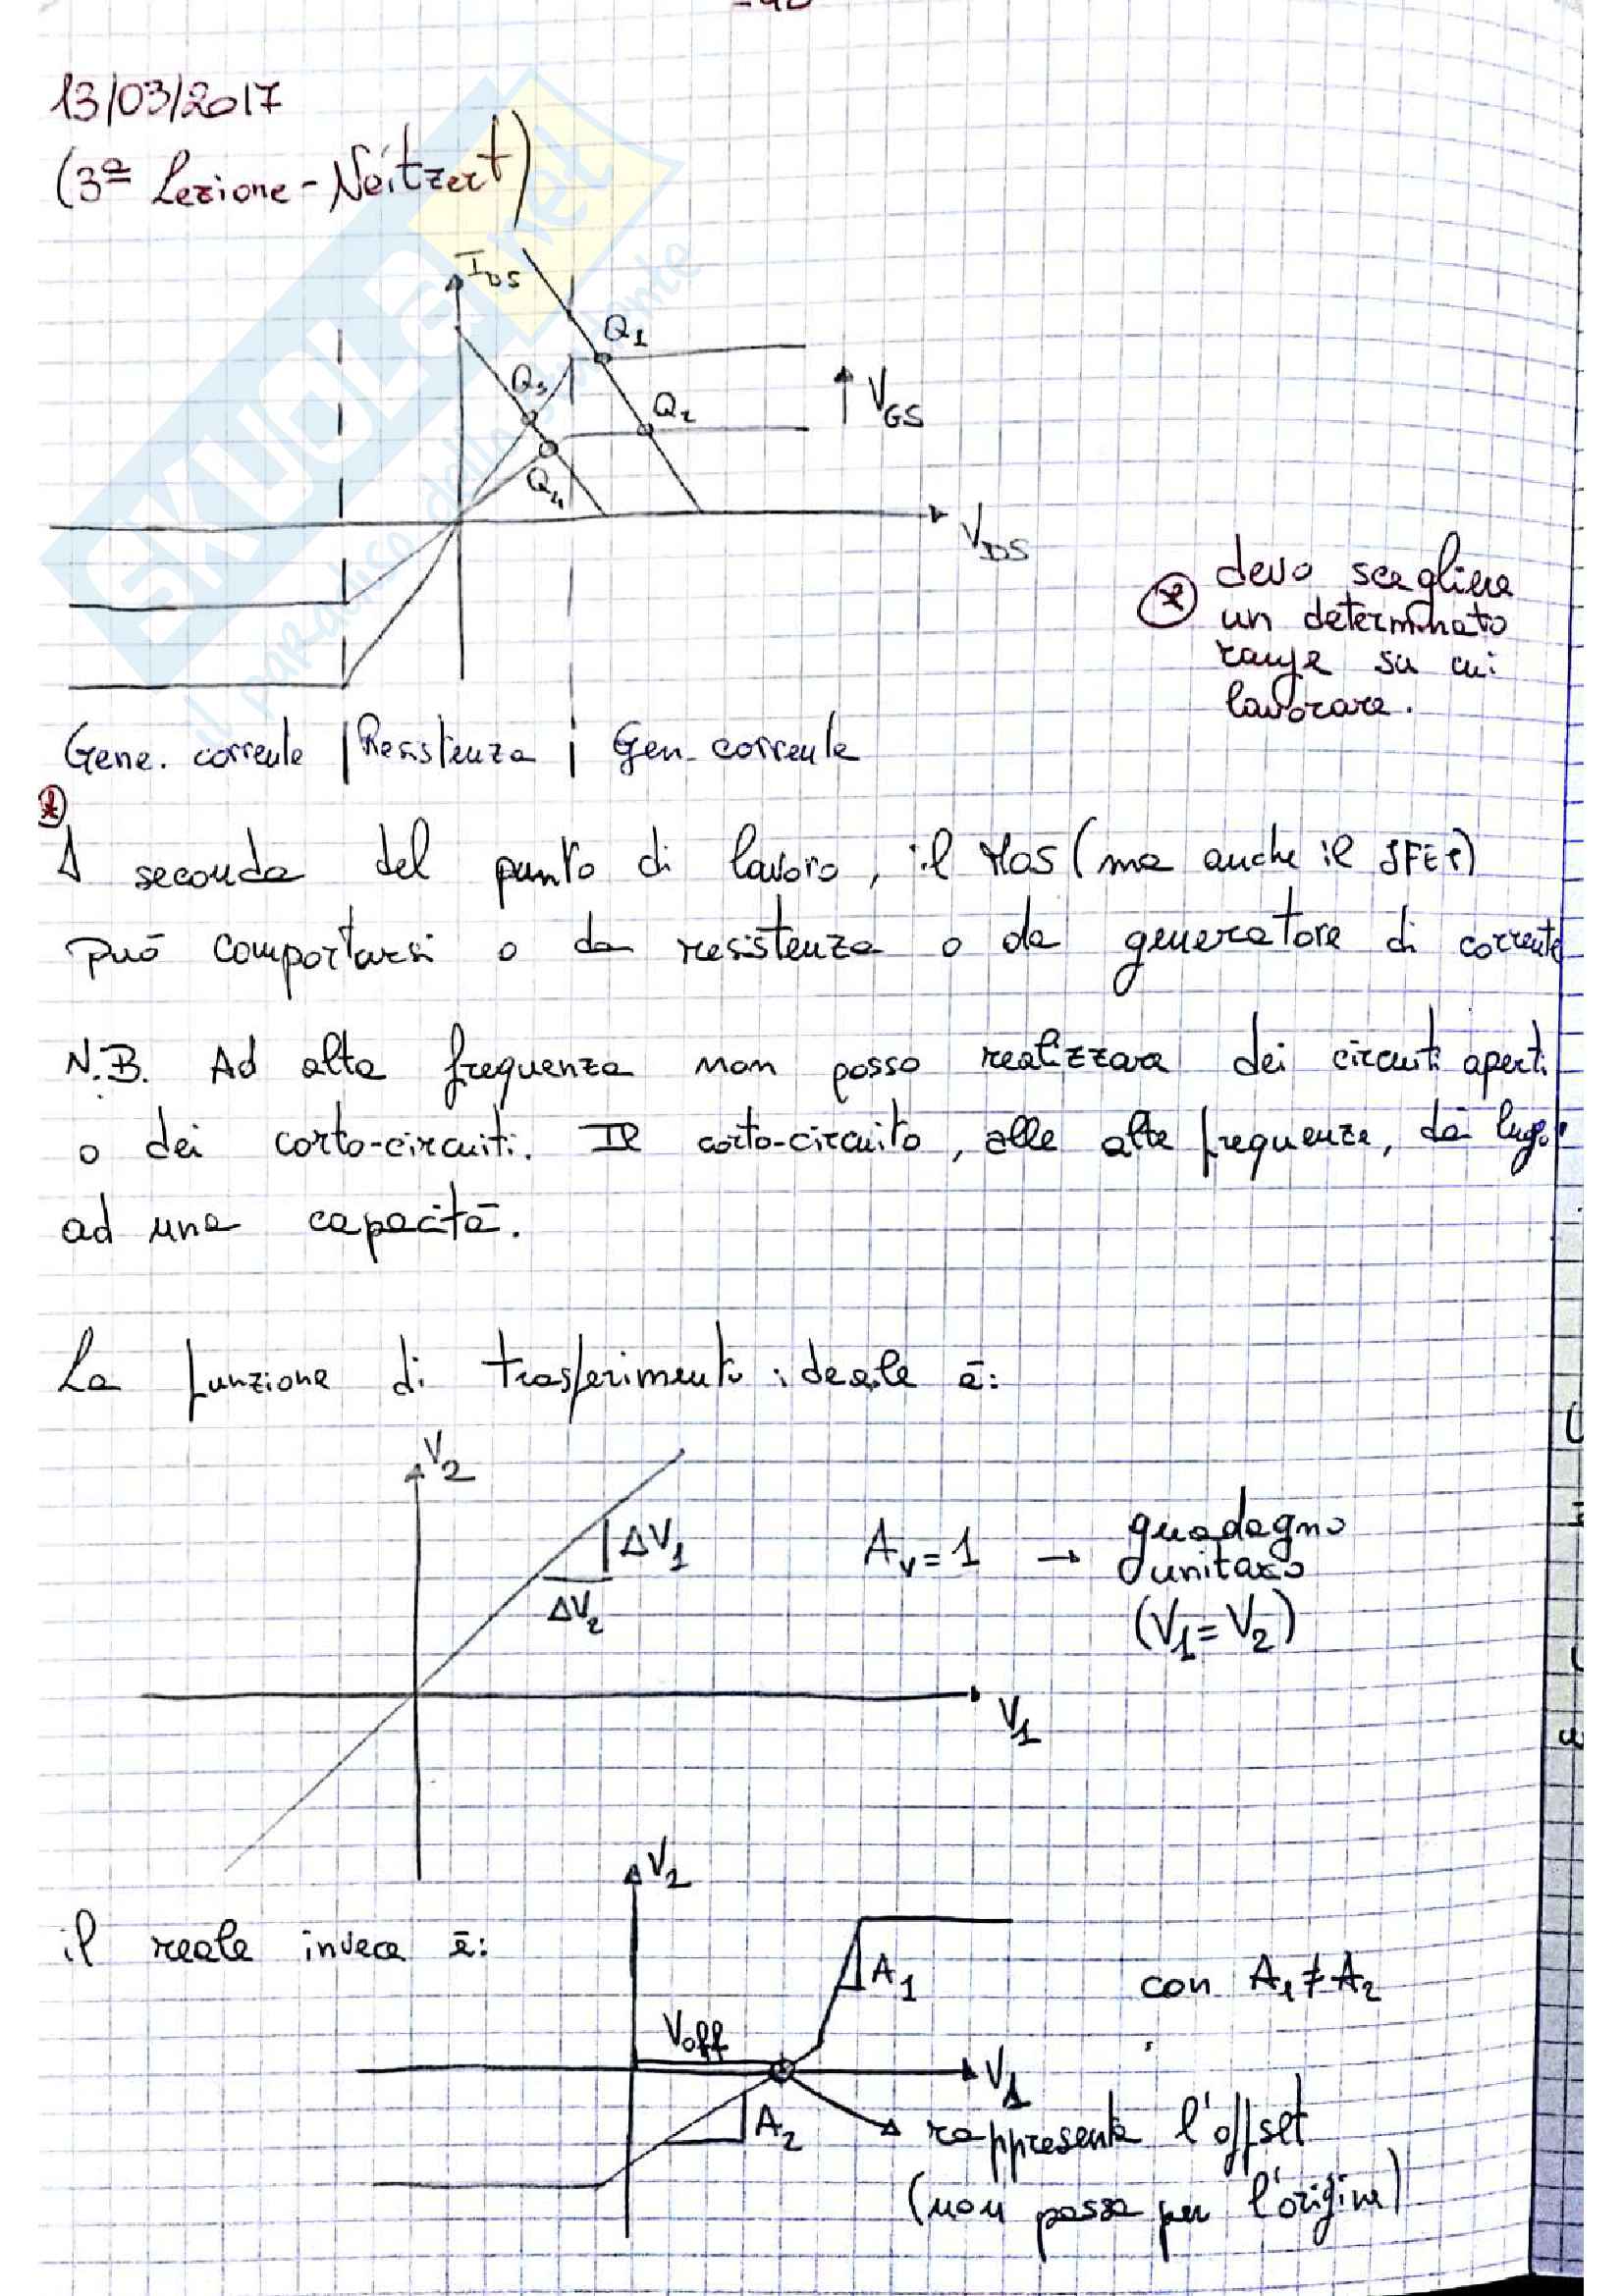 13/03/2017
(3ª Lezione - Neitzert)
IDS
Q1
Q3
Q2
VGS
Q4
VDS
* devo scegliere
un determinato
range su cui
lavorare.
Gene. corrente | Resistenza | Gen. corrente
*
A seconda del punto di lavoro, il MOS (ma anche il JFET)
può comportarsi o da resistenza o da generatore di corrente
N.B. Ad alta frequenza non posso realizzare dei circuiti aperti
o dei corto-circuiti. Il corto-circuito, alle alte frequenze, dà luogo
ad una capacità.
La funzione di trasferimento ideale è:
V2
ΔV1
ΔV2
AV = 1 → guadagno
unitario
(V1 = V2)
V1
V2
il reale invece è:
A1
con A1 ≠ A2
Voff
V1
A2
rappresenta l'offset
(non passa per l'origine)
SKUOLA.net
il paradiso dello studente